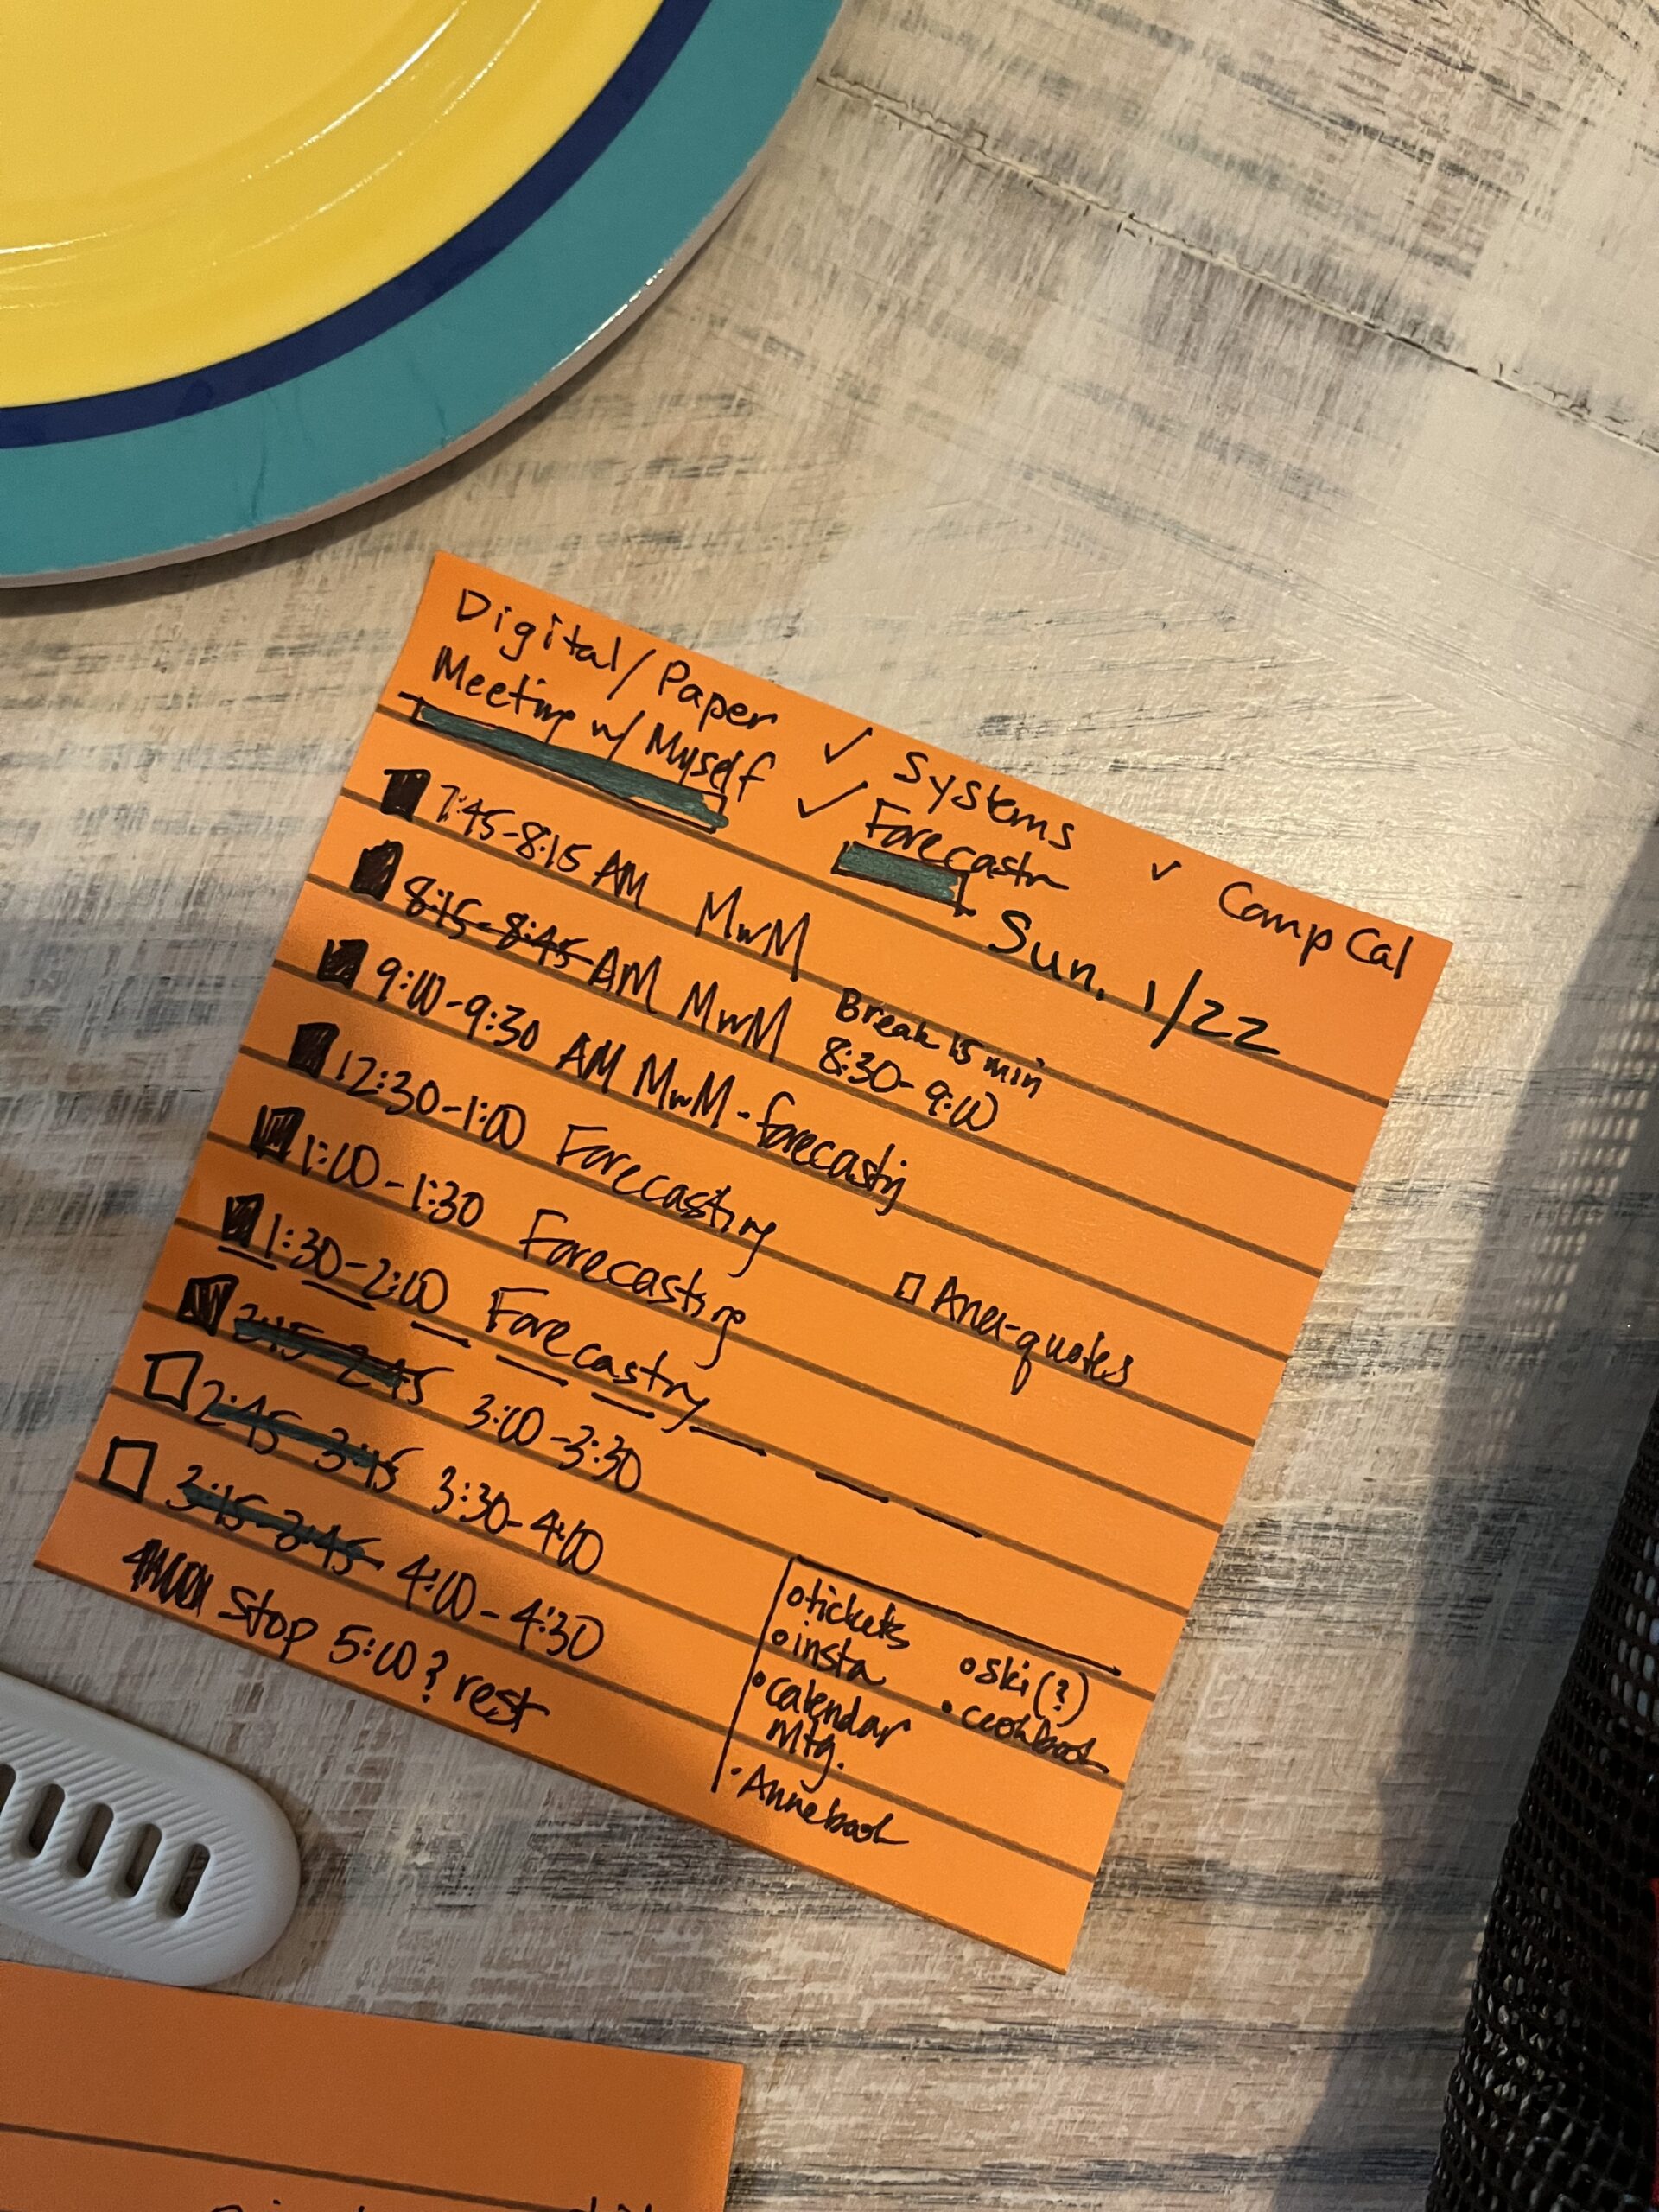 Digital/Paper ✓ Systems ✓ Camp Cal
Meeting w/ Myself ✓ Forecastn
Sun. 1/22
7:45-8:15 AM MwM
8:15-8:45 AM MwM Break 15 min
8:30-9:00
9:00-9:30 AM MwM-forecasting
12:30-1:00 Forecasting
1:00-1:30 Forecasting □ Anex-quotes
1:30-2:00 Forecasting
2:15-2:45 3:00-3:30
2:45-3:15 3:30-4:00
3:15-3:45 4:00-4:30
Stop 5:00? rest
tickets
insta
calendar
Mtg.
Annebook
ski(?)
cookbook